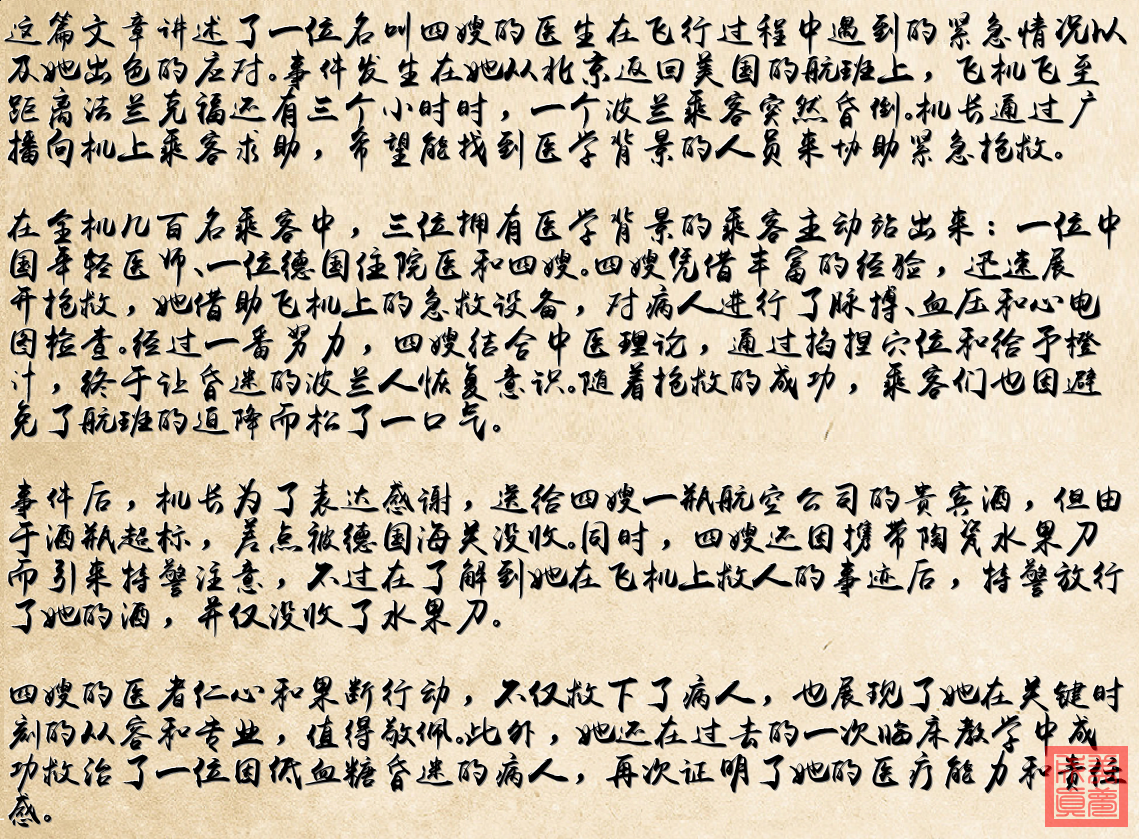 这篇文章讲述了一位名叫四嫂的医生在飞行过程中遇到的紧急情况以
及她出色的应对。事件发生在她从北京返回美国的航班上，飞机飞至
距离法兰克福还有三个小时时，一个波兰乘客突然昏倒。机长通过广
播向机上乘客求助，希望能找到医学背景的人员来协助紧急抢救。
在全机几百名乘客中，三位拥有医学背景的乘客主动站出来：一位中
国年轻医师、一位德国住院医和四嫂。四嫂凭借丰富的经验，迅速展
开抢救，她借助飞机上的急救设备，对病人进行了脉搏、血压和心电
图检查。经过一番努力，四嫂结合中医理论，通过掐捏穴位和给予橙
汁，终于让昏迷的波兰人恢复意识。随着抢救的成功，乘客们也因避
免了航班的迫降而松了一口气。
事件后，机长为了表达感谢，送给四嫂一瓶航空公司的贵宾酒，但由
于酒瓶超标，差点被德国海关没收。同时，四嫂还因携带陶瓷水果刀
而引来特警注意，不过在了解到她在飞机上救人的事迹后，特警放行
了她的酒，并仅没收了水果刀。
四嫂的医者仁心和果断行动，不仅救下了病人，也展现了她在关键时
刻的从容和专业，值得敬佩。此外，她还在过去的一次临床教学中成
功救治了一位因低血糖昏迷的病人，再次证明了她的医疗能力和责任
感。